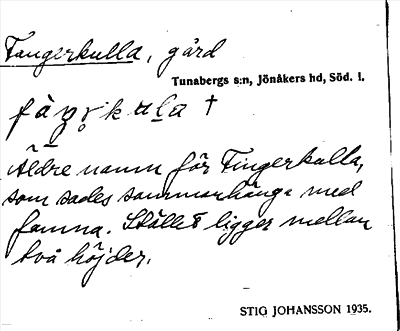 Fangerkulla, gård
Tunabergs s:n, Jönåkers hd, Söd. l.
†
Äldre namn för Fingerkulla,
som sades sammanhänga med
famna. Stället ligger mellan
två höjder.
STIG JOHANSSON 1935.